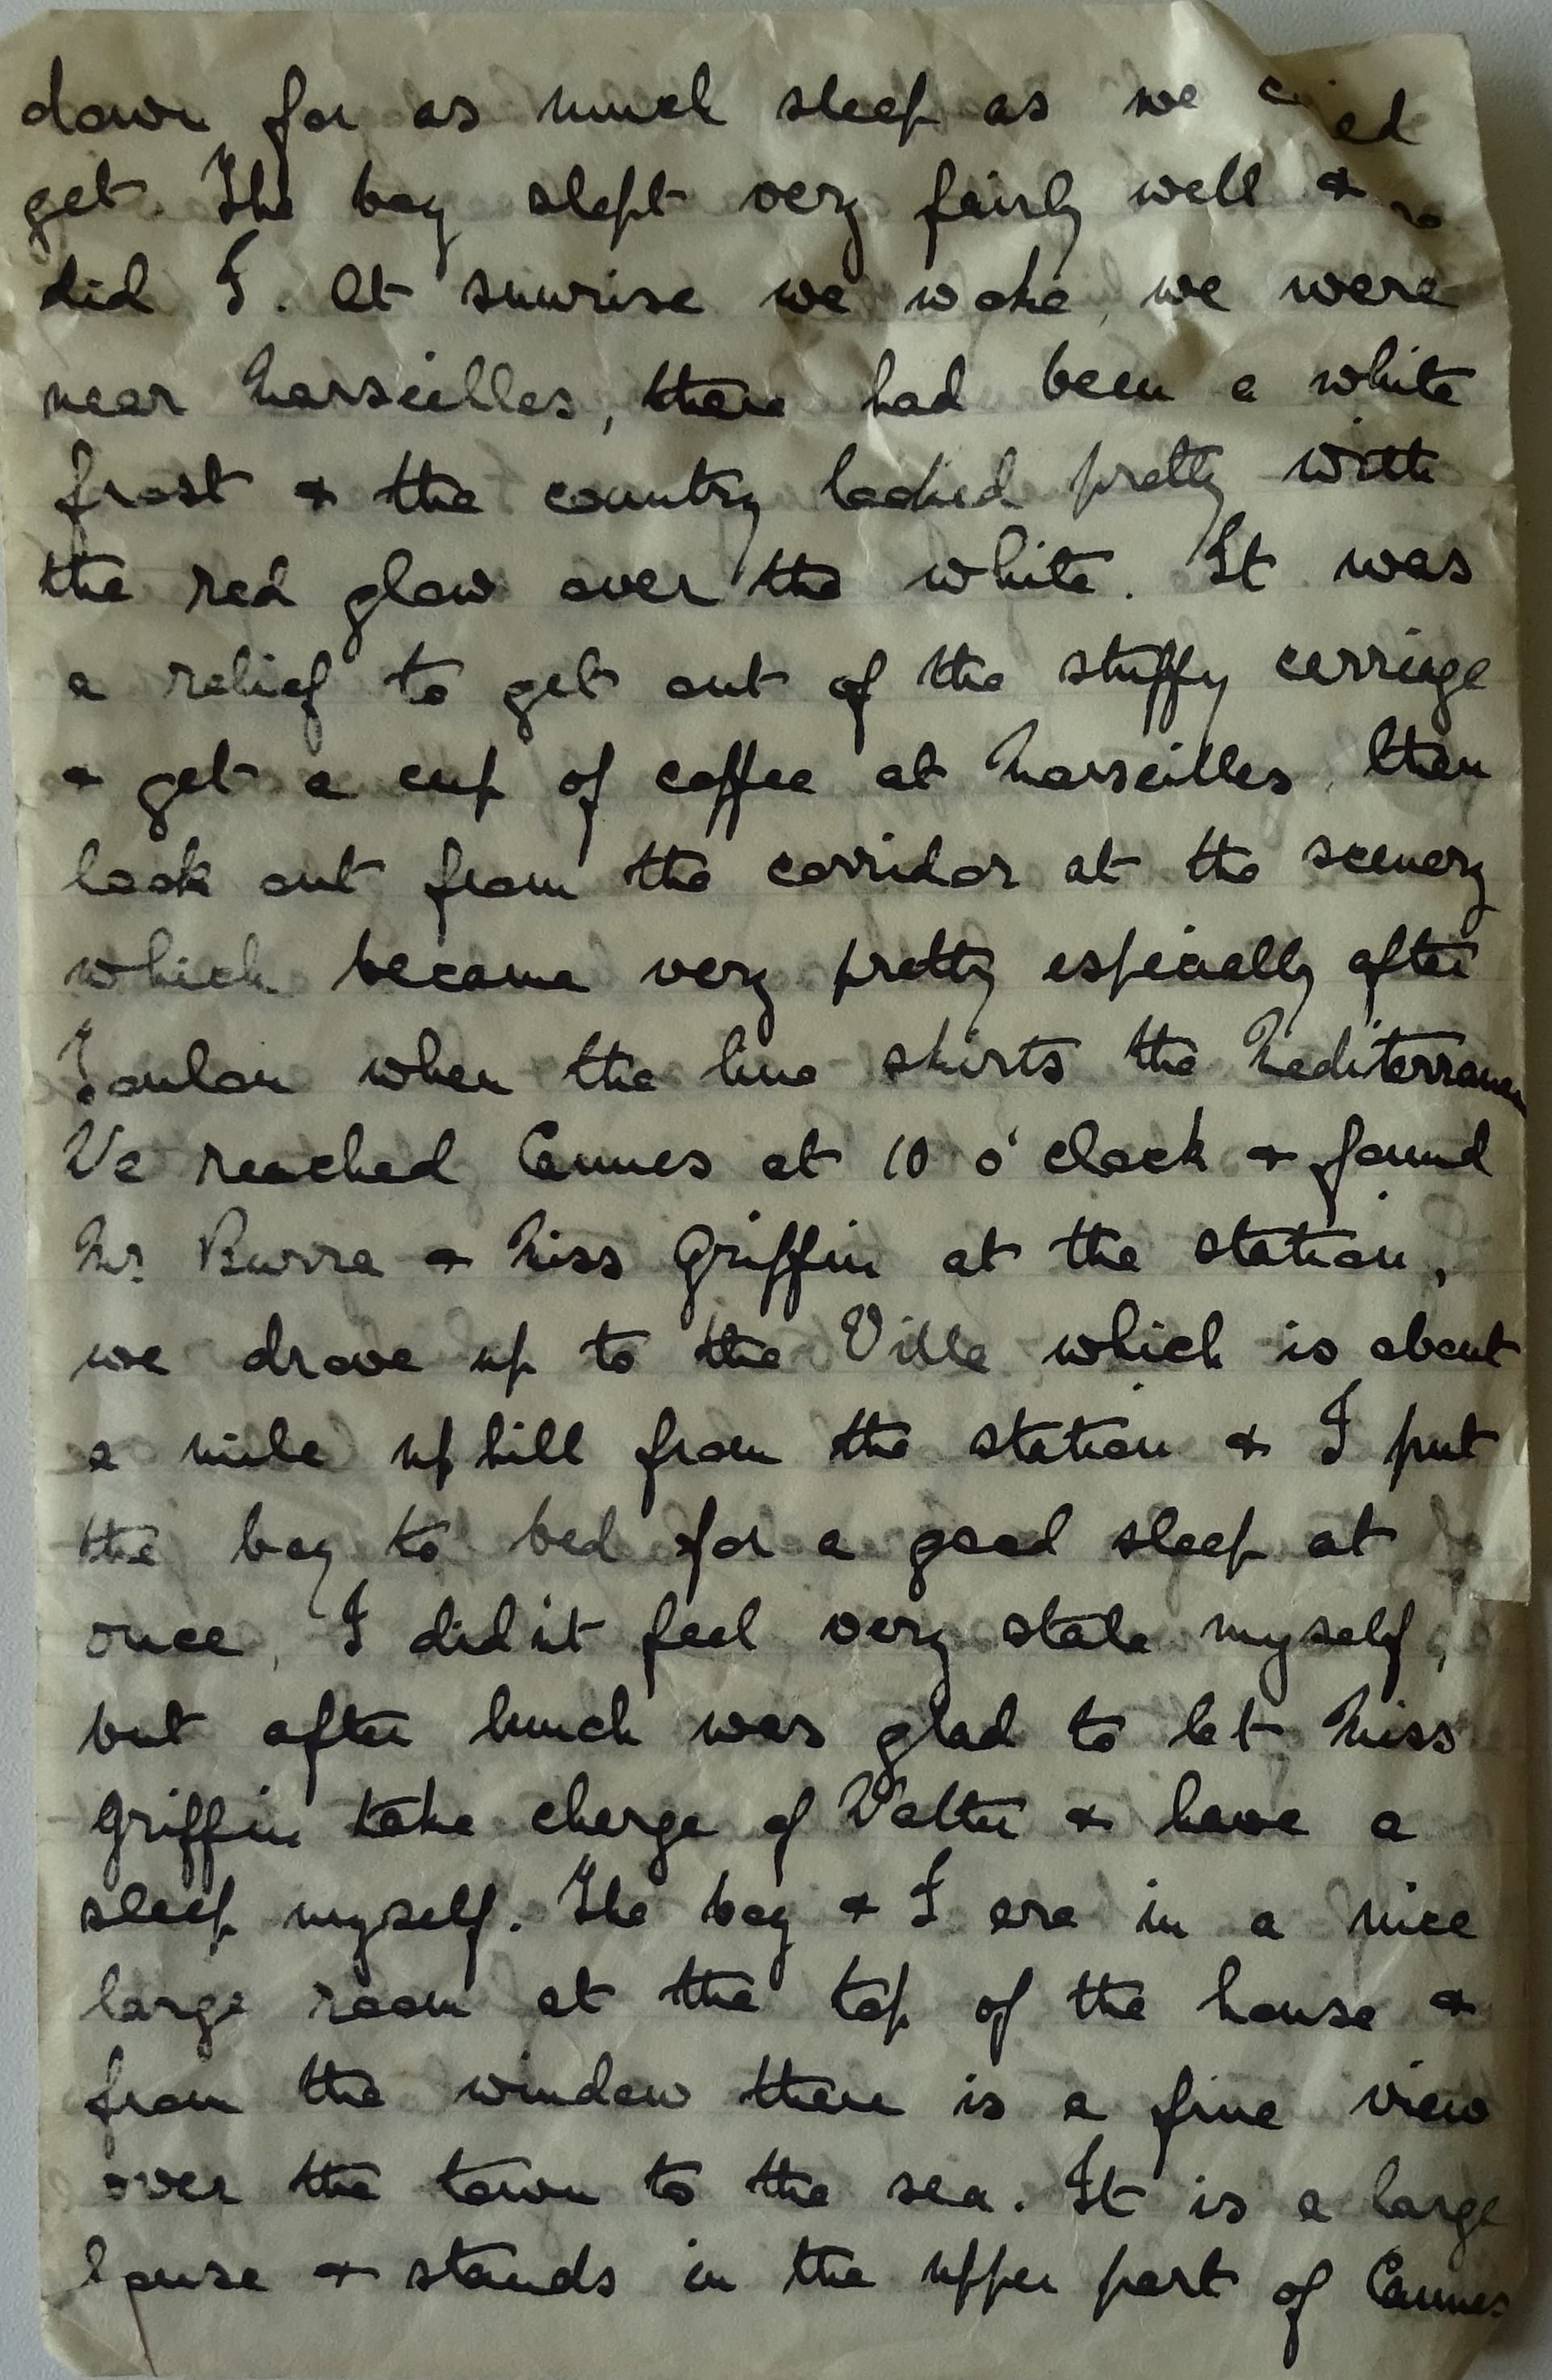 down for as much sleep as we
get. The boy slept very fairly well & so
did I. At sunrise we woke, we were
near Marseilles, there had been a white
frost & the country looked pretty with
the red glow over the white. It was
a relief to get out of the stuffy carriage
& get a cup of coffee at Marseilles, then
look out from the corridor at the scenery
which became very pretty especially after
Toulon when the line skirts the Mediterranean
We reached Cannes at 10 o'clock & found
Mr Burra & Miss Griffin at the station,
we drove up to the Villa which is about
a mile uphill from the station & I put
the boy to bed for a good sleep at
once, I didn't feel very stale myself,
but after lunch was glad to let Miss
Griffin take charge of Walter & have a
sleep myself. The boy & I are in a nice
large room at the top of the house &
from the window there is a fine view
over the town to the sea. It is a large
house & stands in the upper part of Cannes